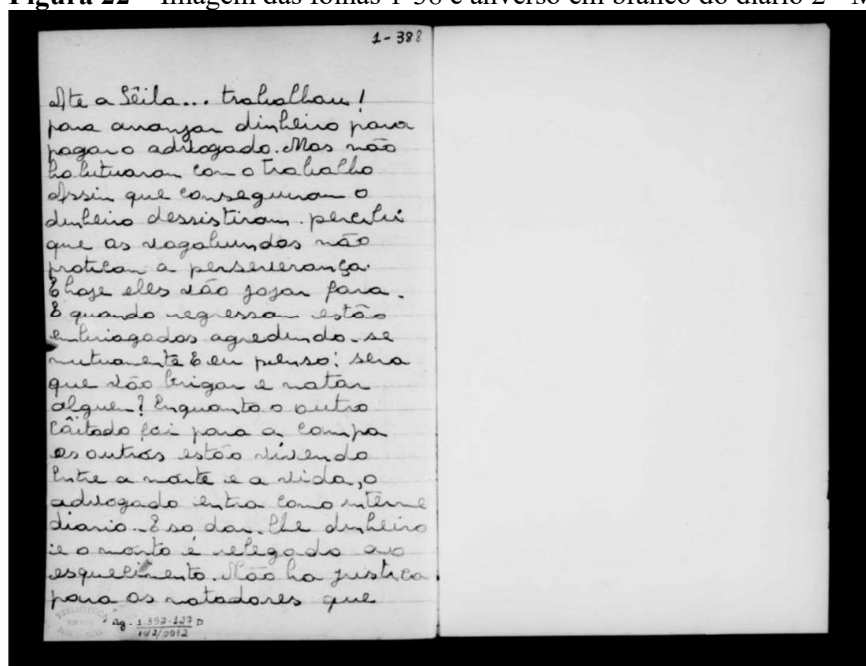 Figura 22 – Imagem das folhas 1-38 e anverso em branco do diário 2 – M
1-388
Ate a Lêila... trabalhou!
para arranjar dinheiro para
pagar o advogado. Mas não
habituaram com o trabalho
Assin que conseguiram o
dinheiro dessistiram. percebi
que as vagabundas não
praticam a perseverança.
E hoje elles vão jogar fara.
E quando regressam estão
embriagados agredindo-se
mutuamente E eu penso: sera
que vão brigar e matar
alguen? Enquanto o outro
Côitado foi para a campa
os outros estão vivendo
Entre a mórte e a vida, o
advogado entra como interme
diario. E so dar-lhe dinheiro
e o morto é relegado ao
esquecimento. Não ha justiça
para os matadores que
BIBLIOTECA
Ag- 1.392-127 D
2012